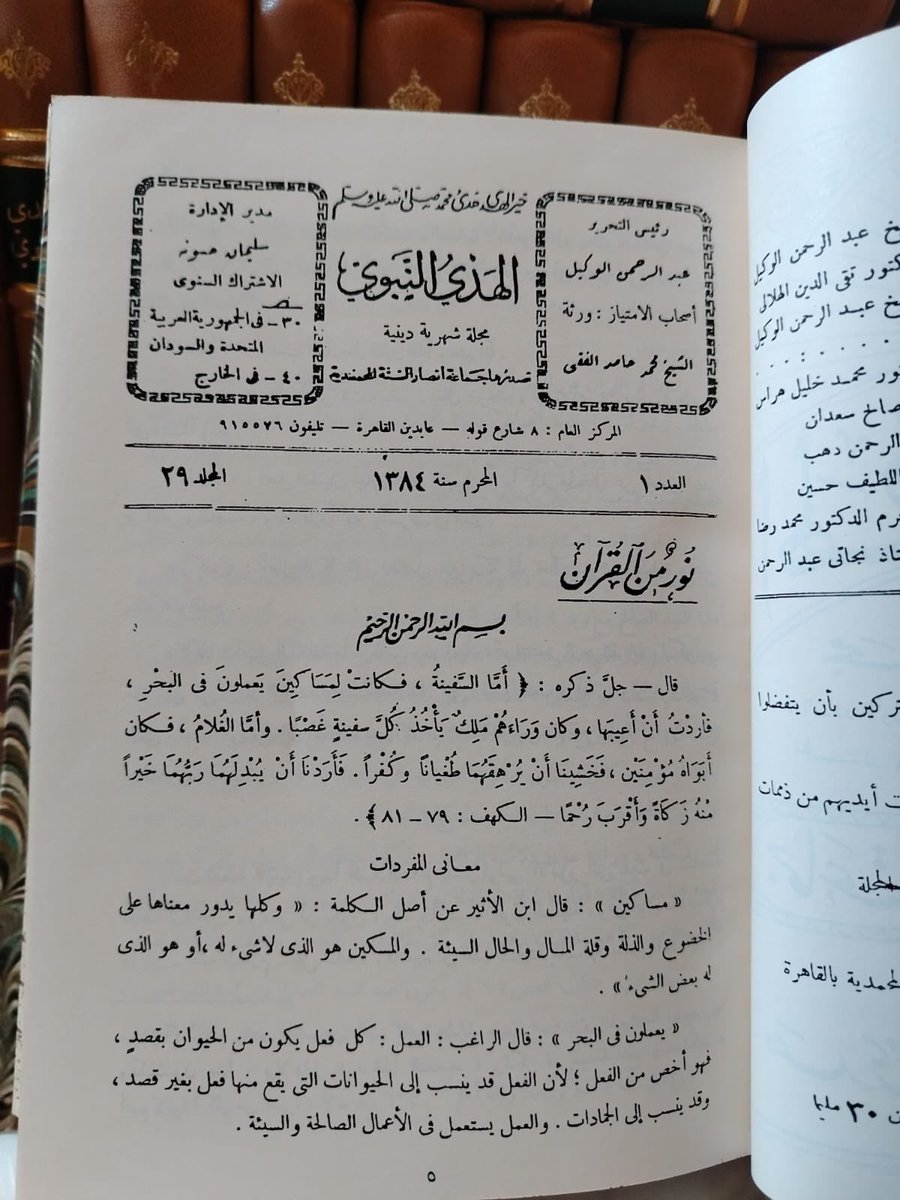 خير الهدى هدى محمد صلى الله عليه وسلم
رئيس التحرير
عبد الرحمن الوكيل
أصحاب الامتياز : ورثة
الشيخ محمد حامد الفقى
الهدي النبوي
مجلة شهرية دينية
تصدرها جماعة أنصار السنة المحمدية
مدير الإدارة
سليمان حسونه
الاشتراك السنوى
٣٠ – فى الجمهورية العربية
المتحدة والسودان
٤٠ – فى الخارج
المركز العام : ٨ شارع قوله – عابدين القاهرة – تليفون ٩١٥٥٧٦
العدد ١
المحرم سنة ١٣٨٤
المجلد ٢٩
نور من القرآن
بسم الله الرحمن الرحيم
قال – جلَّ ذكره : ﴿ أَمَّا السَّفينةُ ، فكانتْ لِمَسَاكِينَ يَعملونَ فى البحْرِ ،
فأردْتُ أَنْ أَعِيبَها ، وكان وَرَاءَهُمْ مَلِكٌ يَأْخُذُ كُلَّ سفينةٍ غَصْبًا . وأمَّا الغُلامُ ، فكان
أَبَوَاهُ مُؤْمِنَيْن ، فَخَشِينَا أَنْ يُرْهِقَهُمَا طُغْيانًا وكُفْراً . فَأَرَدْنَا أَنْ يُبْدِلَهُمَا رَبُّهُمَا خَيْراً
مِنْهُ زَكَاةً وَأَقْرَبَ رُحْمًا – الكهف : ٧٩ – ٨١ ﴾ .
معانى المفردات
« مساكين » : قال ابن الأثير عن أصل الكلمة : « وكلها يدور معناها على
الخضوع والذلة وقلة المال والحال السيئة . والمسكين هو الذى لاشىء له ،أو هو الذى
له بعض الشىء » .
« يعملون فى البحر » : قال الراغب : العمل : كل فعل يكون من الحيوان بقصدٍ ،
فهو أخص من الفعل ؛ لأن الفعل قد ينسب إلى الحيوانات التى يقع منها فعل بغير قصد ،
وقد ينسب إلى الجمادات . والعمل يستعمل فى الأعمال الصالحة والسيئة .
٥
عبد الرحمن الوكيل
تقى الدين الهلالى
عبد الرحمن الوكيل
محمد خليل هراس
سعدان
الرحمن دهب
اللطيف حسين
الدكتور محمد رضا
نجاتى عبد الرحمن
بأن يتفضلوا
أيديهم من ذممات
المجلة
المحمدية بالقاهرة
٣٠ مليما